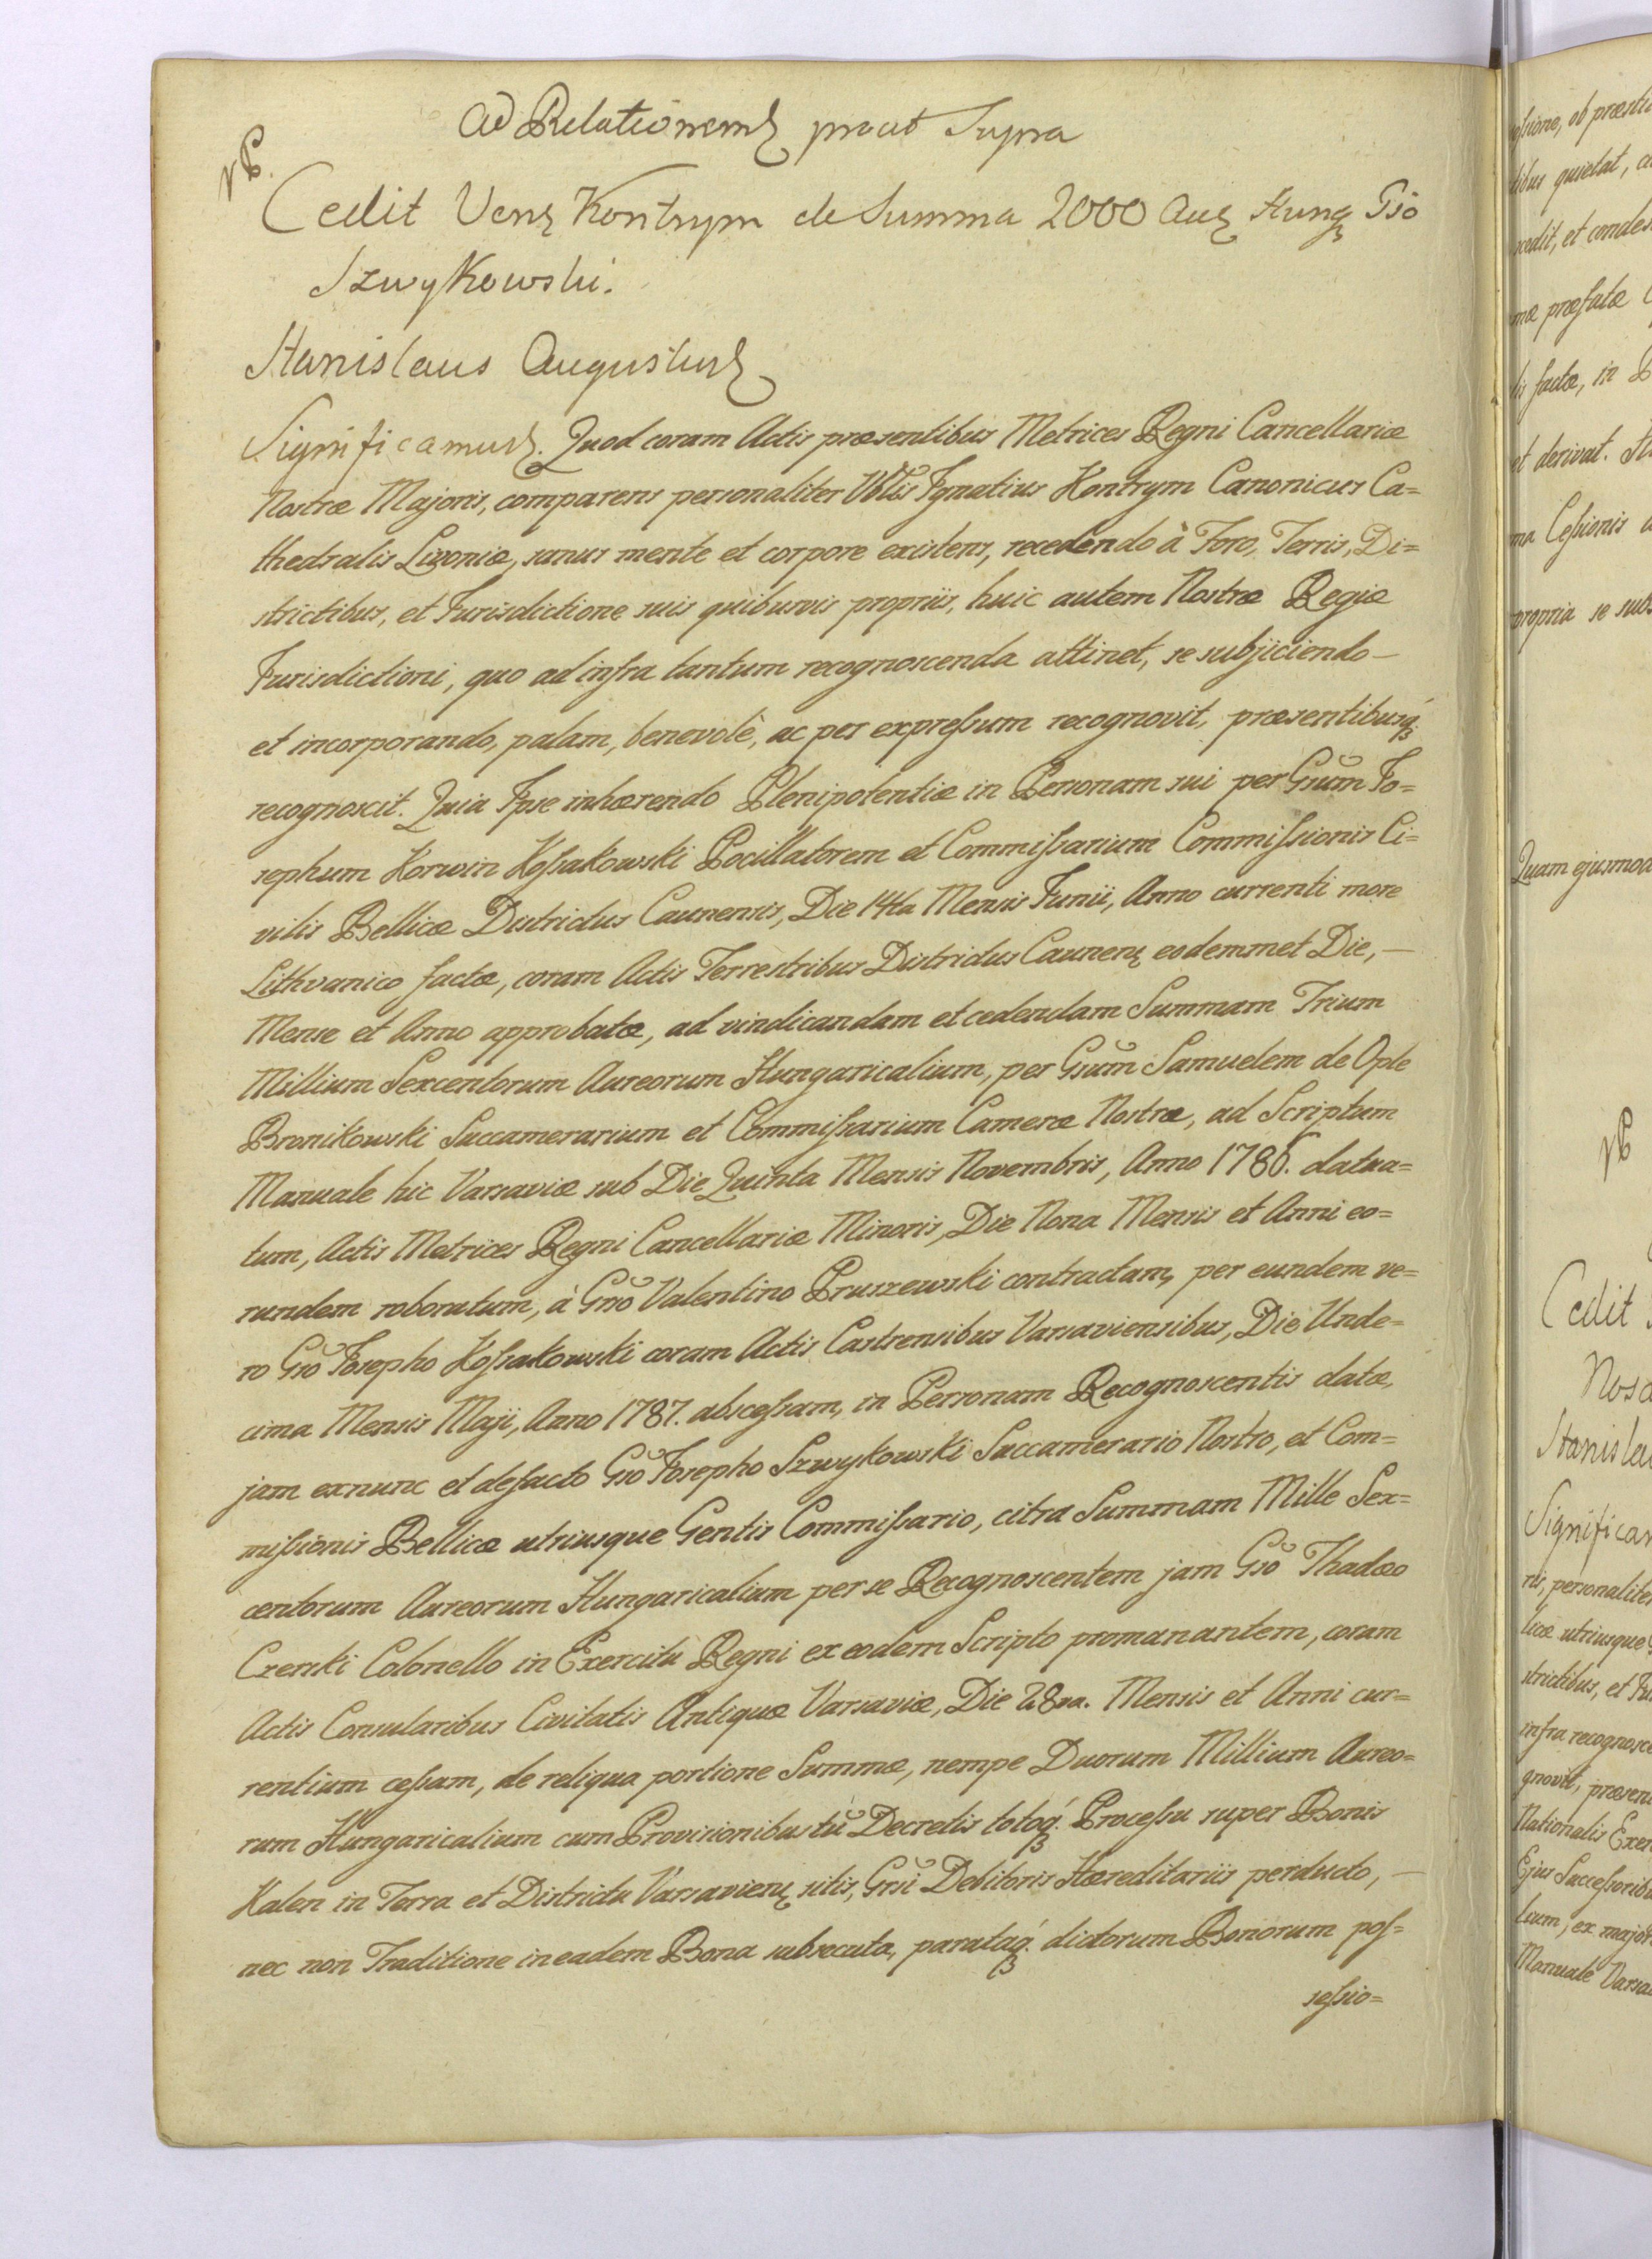 Ad Relationem prout Supra
Cedit Ven Kontrym de Summa 2000 Au Hung Gsō
Szwykowski.
Stanislaus Augustus
Significamus. Quod coram Actis præsentibus Metrices Regni Cancellariæ
Nostræ Majoris, comparens personaliter Vblis Ignatius Kontrym Canonicus Ca=
thedralis Livoniæ, sanus mente et corpore existens, recedendo à Foro, Terris, Di=
strictibus, et Jurisdictione suis quibusvis propriis, huic autem Nostræ Regiæ
Jurisdictioni, quo ad infra tantum recognoscenda attinet, se subjiciendo –
et incorporando, palam, benevolè, ac per expreſsum recognovit, præsentibusq́ꝫ
recognoscit. Quia Ipse inhærendo Plenipotentiæ in Personam sui per Gsum Jo=
sephum Korwin Koſsakowski Pocillatorem et Commiſsarium Commiſsionis Ci=
vilis Bellicæ Districtus Caunensis, Die 14ta Mensis Junii, Anno currenti more
Lithvanico factæ, coram Actis Terrestribus Districtus Caunenꝫ eodemmet Die, –
Mense et Anno approbatæ, ad vindicandam et cedendam Summam Trium
Millium Sexcentorum Aureorum Hungaricalium, per Gsum Samuelem de Ople
Bronikowski Succamerarium et Commiſsarium Cameræ Nostræ, ad Scriptum
Manuale hic Varsaviæ sub Die Quinta Mensis Novembris, Anno 1786. datua=
tum, Actis Metrices Regni Cancellariæ Minoris, Die Nona Mensis et Anni eo=
rundem roboratum, à Gsō Valentino Pruszewski contractam, per eundem ve=
ro Gsō Josepho Koſsakowski coram Actis Castrensibus Varsaviensibus, Die Unde=
cima Mensis Maji, Anno 1787. absceſsam, in Personam Recognoscentis datæ,
jam exnunc et defacto Gsō Josepho Szwykowski Succamerario Nostro, et Com=
miſsionis Bellicæ utriusque Gentis Commiſsario, citra Summam Mille Sex=
centorum Aureorum Hungaricalium per se Recognoscentem jam Gsō Thadæo
Czenki Colonello in Exercitu Regni ex eodem Scripto promanantem, coram
Actis Consularibus Civitatis Antiquæ Varsaviæ, Die 28va. Mensis et Anni cur=
rentium ceſsam, de reliqua portione Summæ, nempe Duorum Millium Aureo=
rum Hungaricalium cum Provisionibus tū Decretis totoq́ꝫ. Proceſsu super Bonis
Kalen in Terra et Districtu Varsavienꝫ sitis, Gsī Debitoris Hæreditariis perducto, –
nec non Traditione in eadem Bona subsecuta, parataq́ꝫ. dictorum Bonorum poſ=
seſsio=
eſsione, ob præstit
tibus quietat, ca
cedit, et condes
mæ præfatæ
lis factæ, in
et derivat.
ma Ceſsionis
propria se subs
Quam ejusmod
Cedit
Nosc
Stanislau
Significam
ris, personaliter
licæ utriusque
strictibus, et Ju
infra recognosce
gnovit, præsent
Nationalis Exer
Ejus Succeſsoribu
lium, ex majori
Manuale Varsa